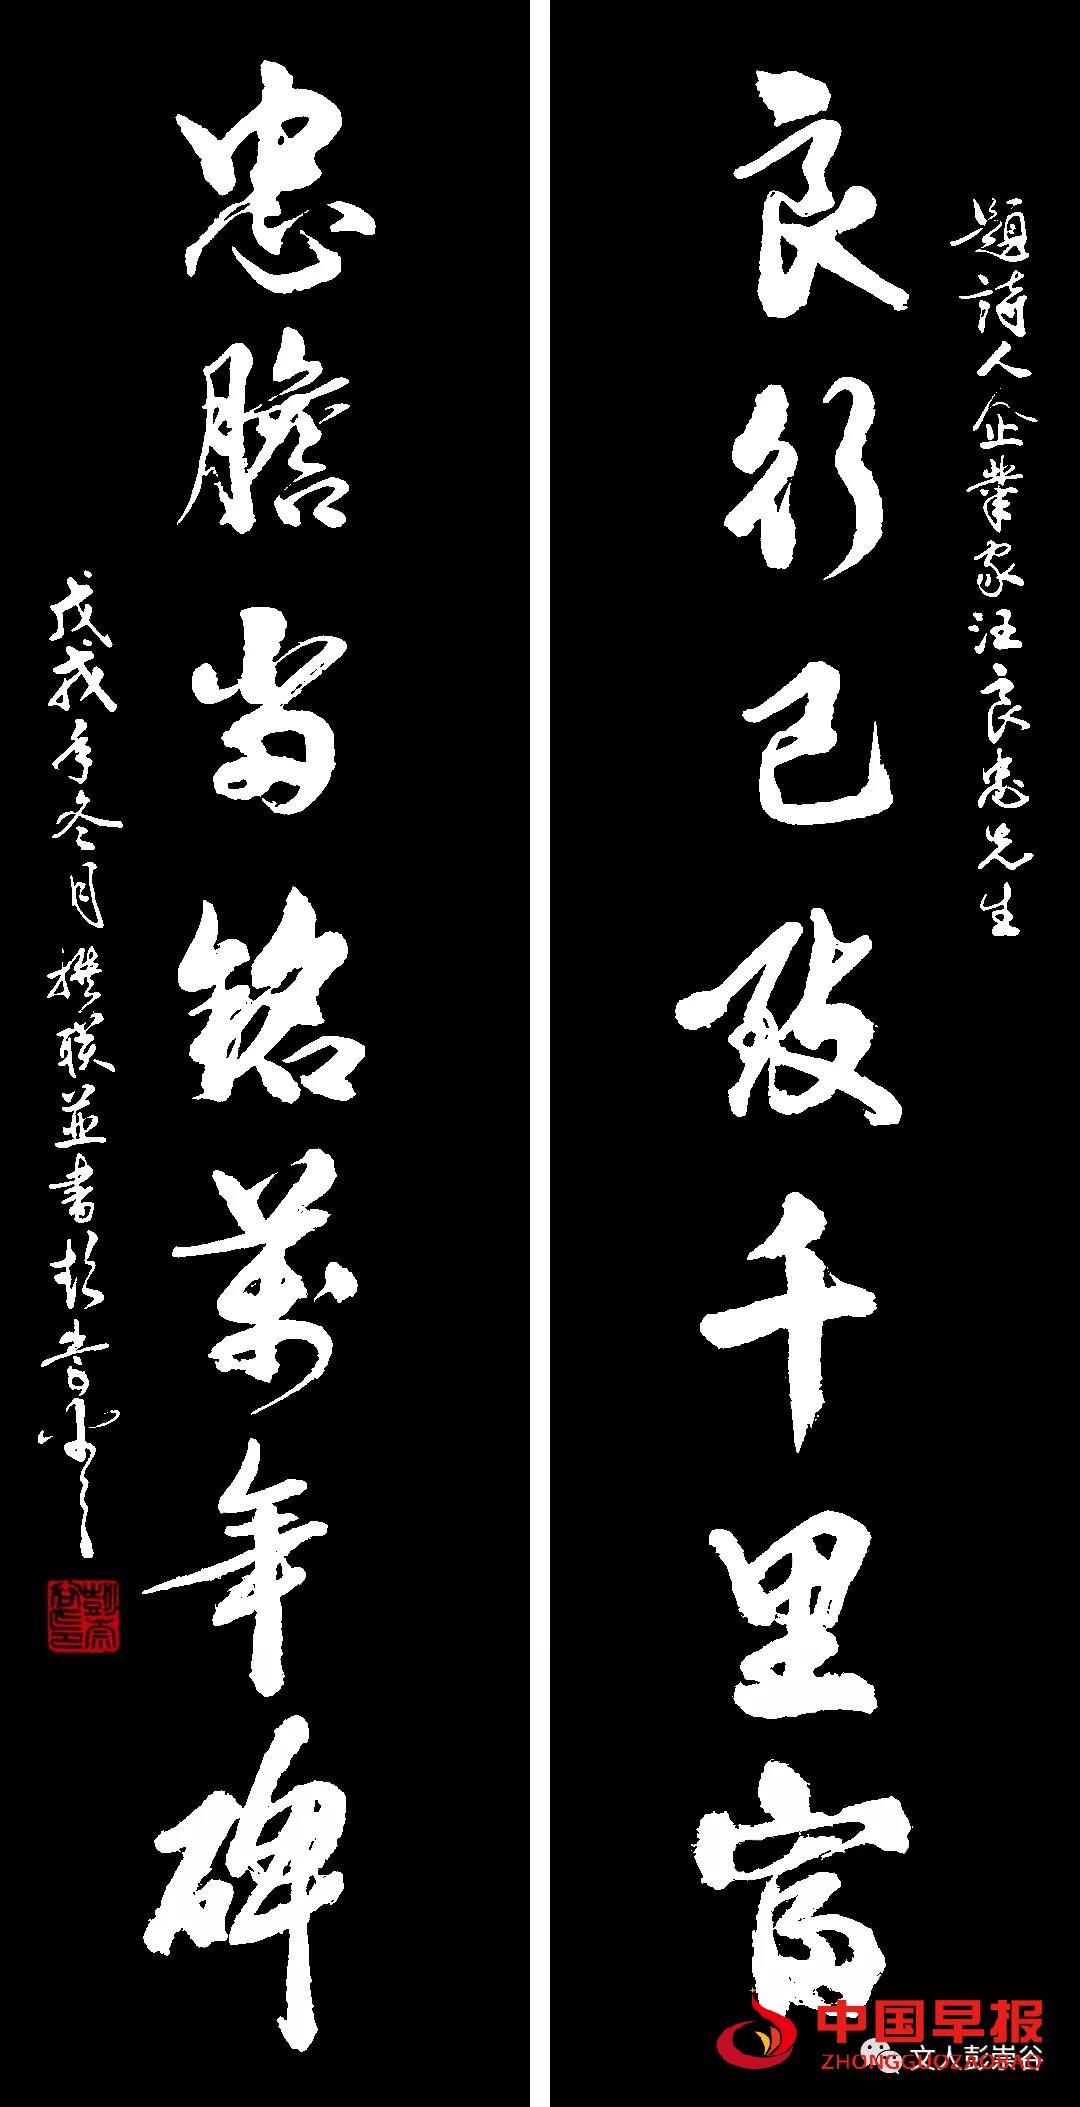 題詩人企業家汪良忠先生
良行已致千里富
忠膽當銘萬年碑
戊戌年冬月撰联並書彭崇谷
彭崇谷印
中国早报
ZHONGGUOZAOBAO
文人彭崇谷